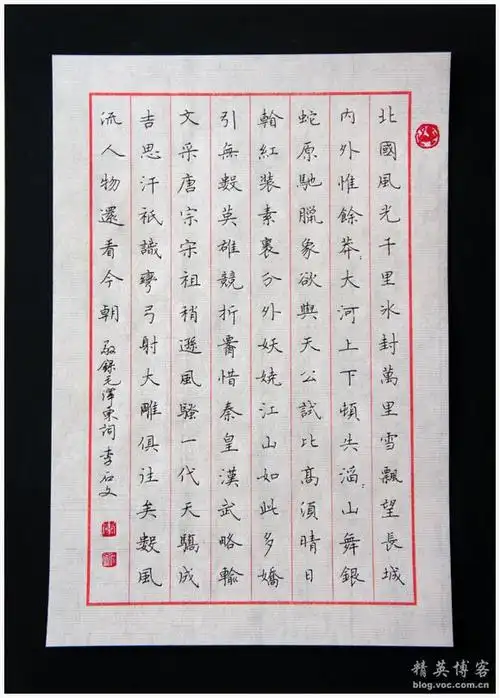 北國風光千里冰封萬里雪飄望長城
内外惟餘莽:大河上下頓失滔:山舞銀
蛇原馳臘象欲與天公試比高須晴日
紅装素裹分外妖嬈江山如此多嬌
引無數英雄競折惜秦皇漢武略輸
文采唐宗宋祖稍遜風騷一代天驕成
吉思汗祇識彎弓射大雕俱往矣數風
流人物還看今朝 敬錄毛澤東詞 李石文
精英博客
blog.voc.com.cn